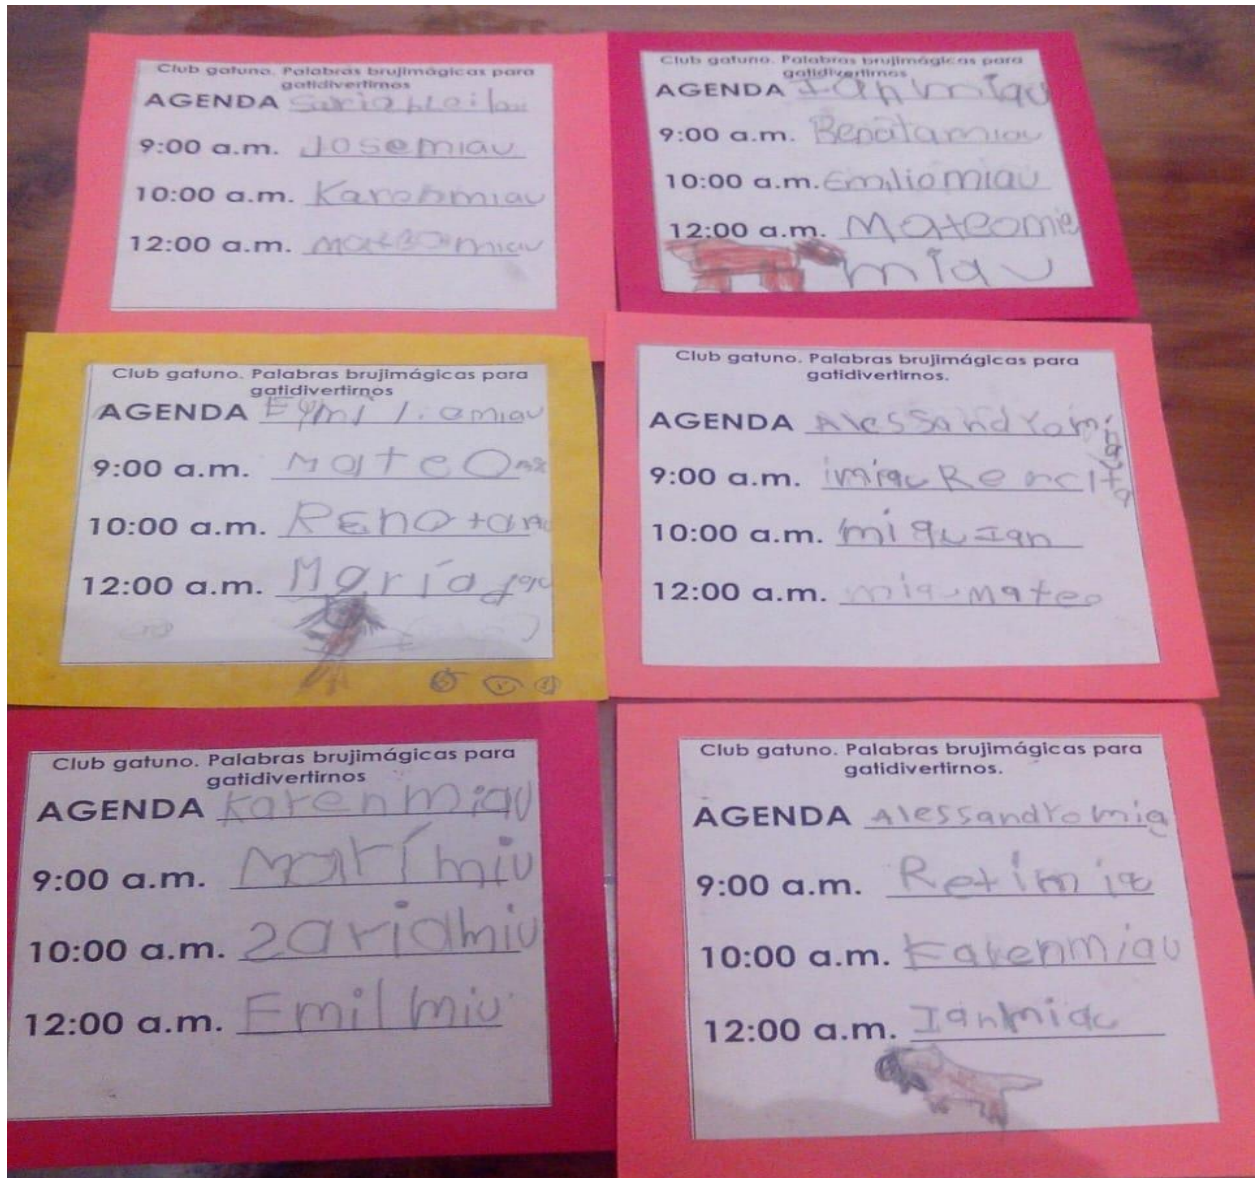 Club gatuno. Palabras brujimágicas para
gatidivertirnos
AGENDA
9:00 a.m. Josemiau
10:00 a.m. Karenmiau
12:00 a.m. mateo miau
Club gatuno. Palabras brujimágicas para
gatidivertirnos
AGENDA Ianmiau
9:00 a.m. Renatamiau
10:00 a.m. Emiliomiau
12:00 a.m. Mateomie
miau
Club gatuno. Palabras brujimágicas para
gatidivertirnos
AGENDA
9:00 a.m. Mateo
10:00 a.m.
12:00 a.m. María
Club gatuno. Palabras brujimágicas para
gatidivertirnos.
AGENDA
9:00 a.m.
10:00 a.m. miau Ian
12:00 a.m. miau Mateo
Club gatuno. Palabras brujimágicas para
gatidivertirnos
AGENDA Karenmiau
9:00 a.m. Marímiu
10:00 a.m. zariamiu
12:00 a.m. Emilmiu
Club gatuno. Palabras brujimágicas para
gatidivertirnos.
AGENDA Alessandromia
9:00 a.m. Retimia
10:00 a.m. Karenmiau
12:00 a.m. Ianmiau